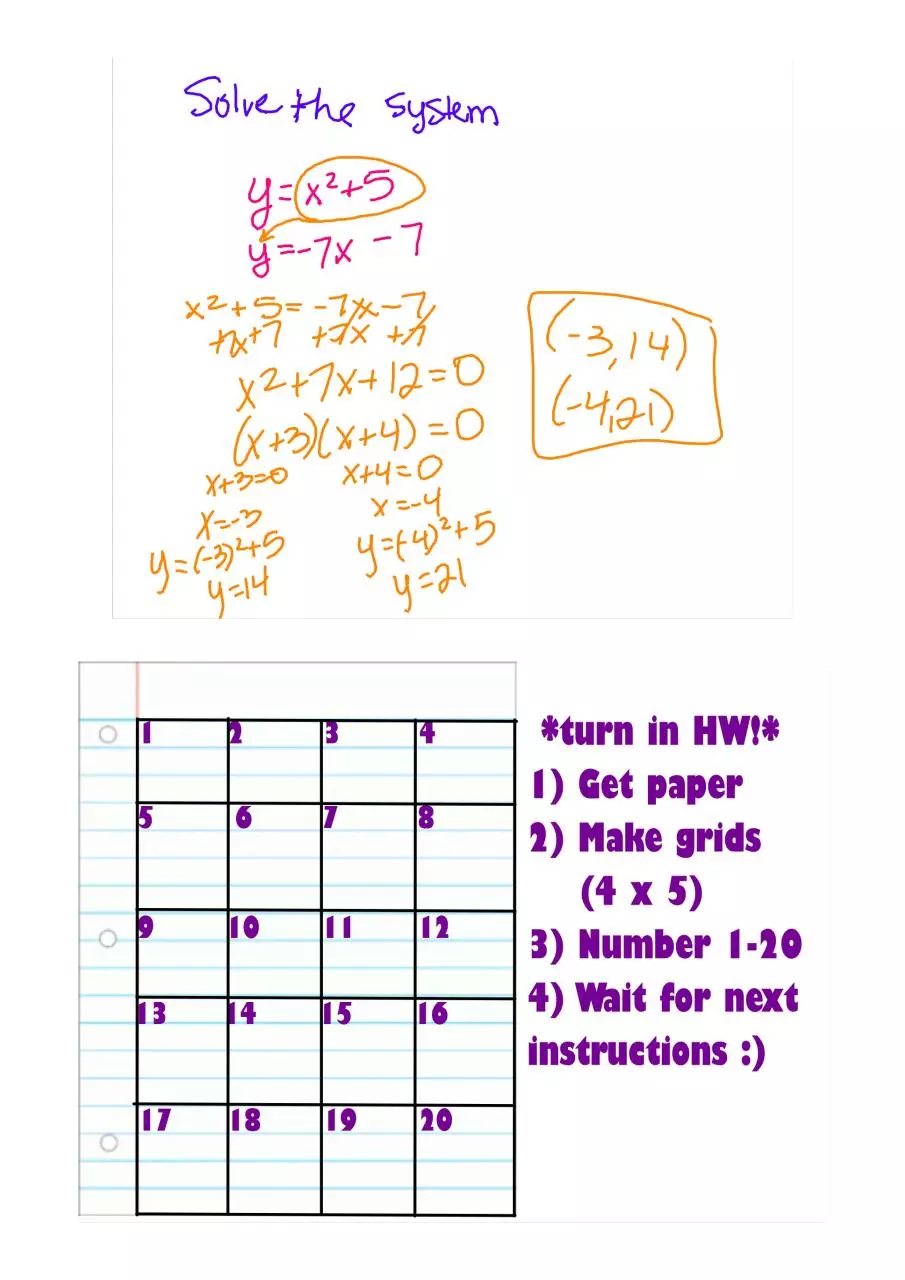 Solve the system
y=x²+5
y=-7x-7
x²+5=-7x-7
+7x+7 +7x +7
x²+7x+12=0
(x+3)(x+4)=0
x+3=0 x+4=0
x=-3 x=-4
y=(-3)²+5 y=(-4)²+5
y=14 y=21
(-3,14)
(-4,21)
1 2 3 4
5 6 7 8
9 10 11 12
13 14 15 16
17 18 19 20
*turn in HW!*
1) Get paper
2) Make grids
(4 x 5)
3) Number 1-20
4) Wait for next
instructions :)